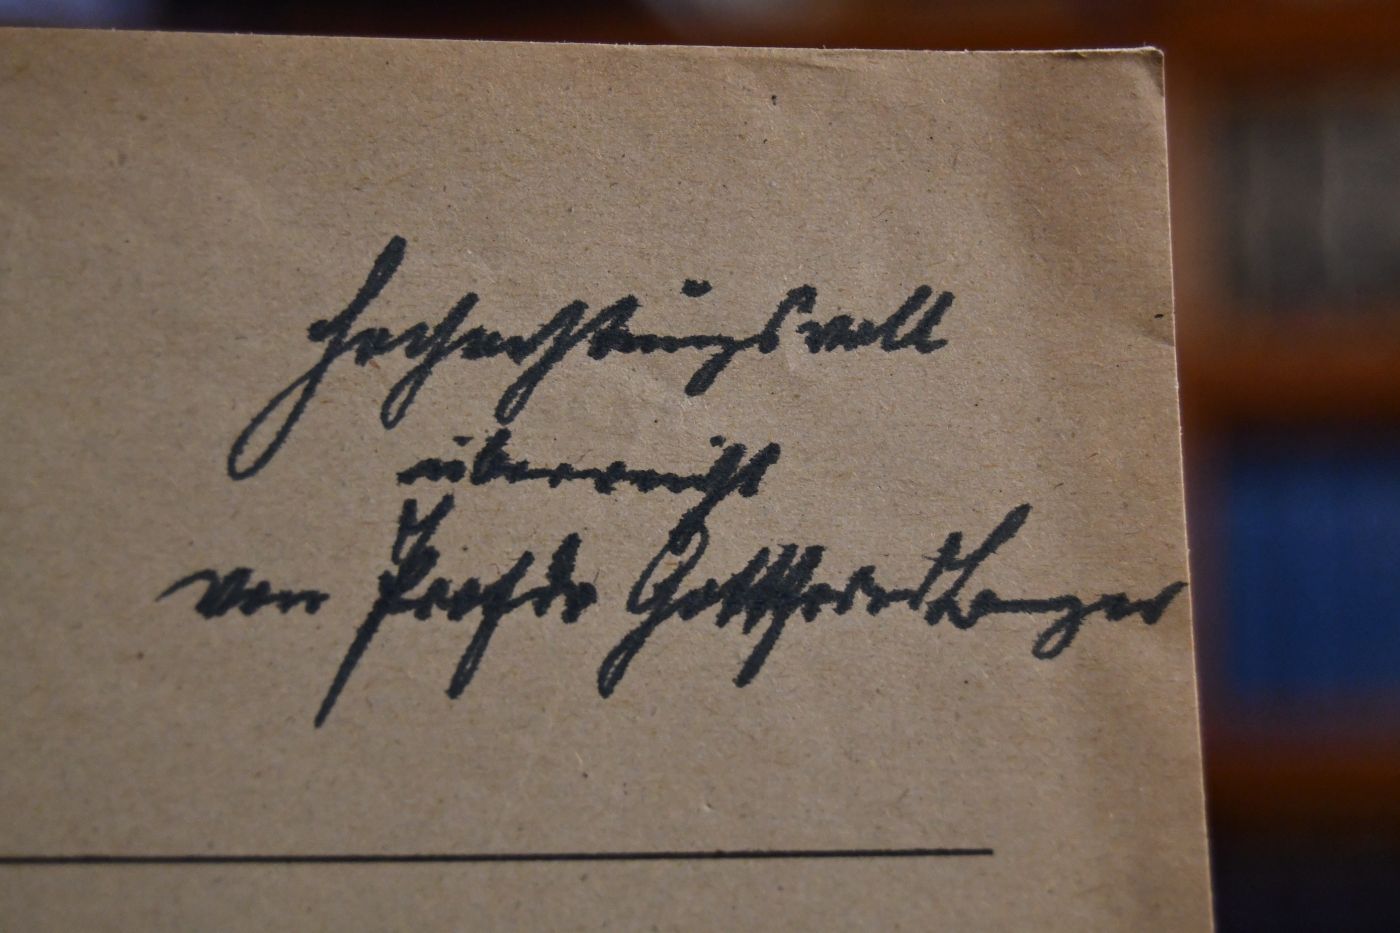 Hochachtungsvoll
überreicht
von Prof Dr Gottfried Langer